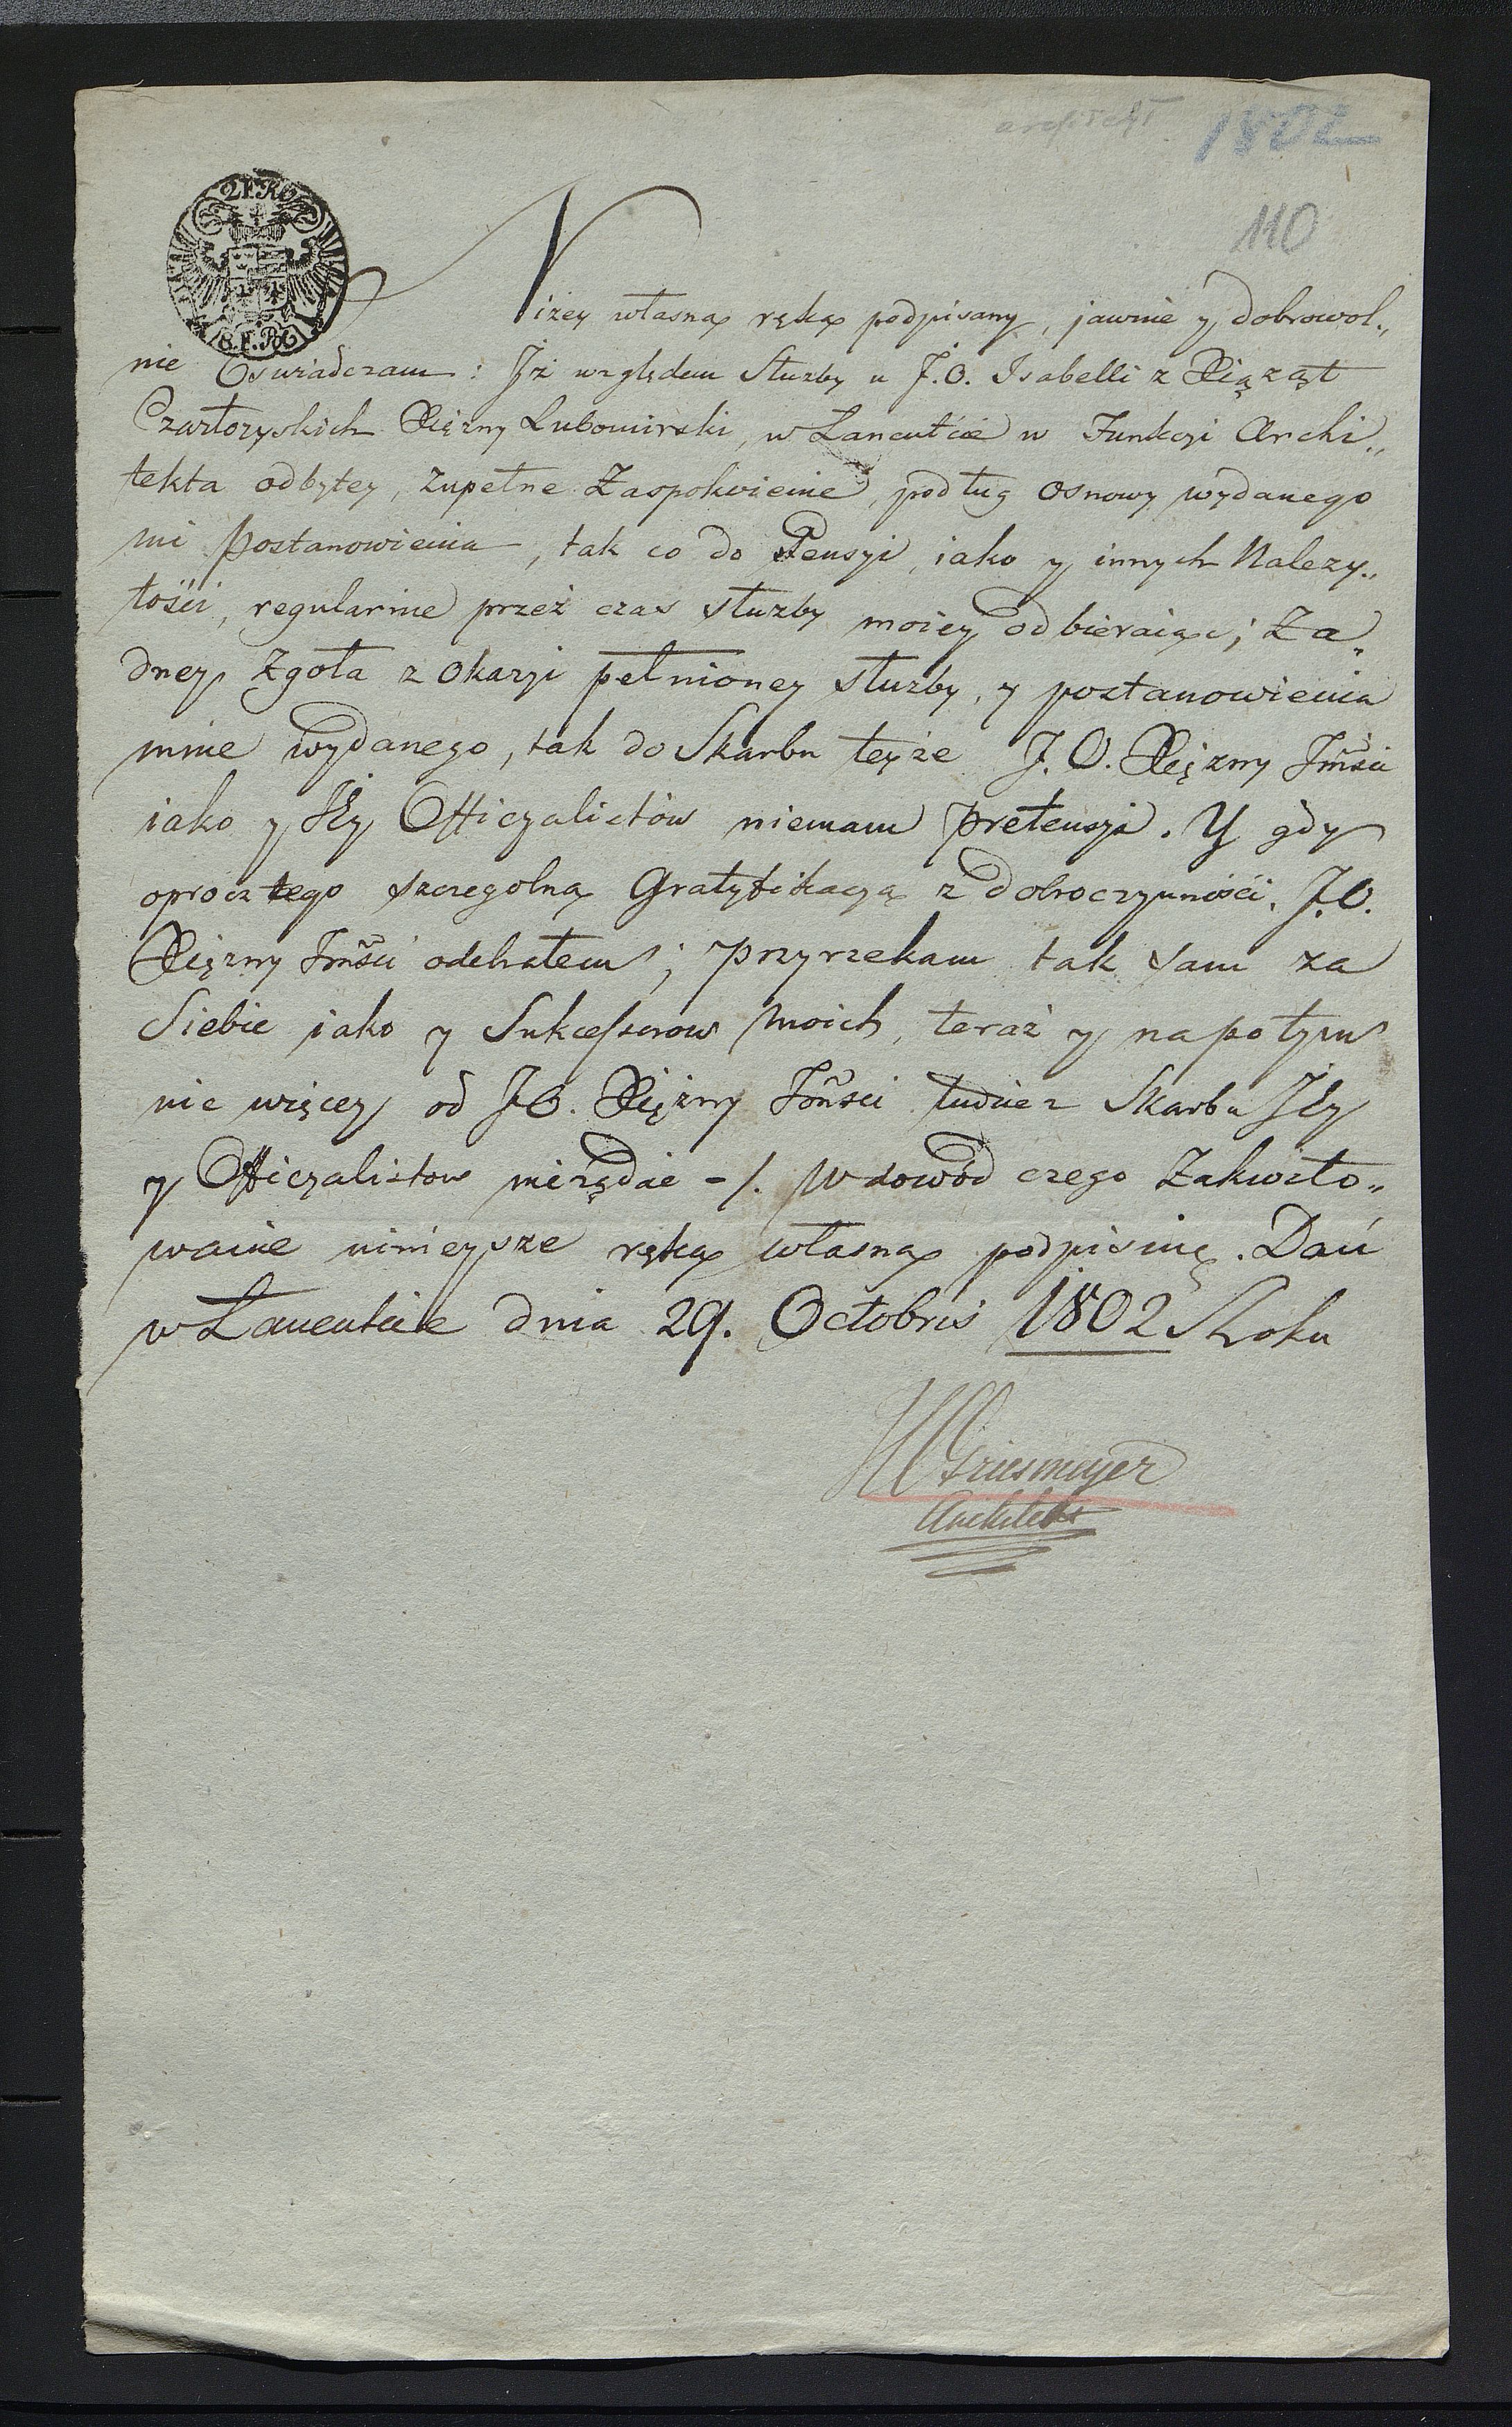 architekt 1802
110
2F.Rh
8.F.Rh
Niżey własną ręką podpisany, jawnie y dobrowol„
nie Oswiadczam: Iż względem Służby u J.O. Isabelli z Xiążąt
Czartoryskich Xiężny Lubomirski, w Lancutcie w Funkcyi Archi„
tekta odbytey, zupełne Zaspokoienie, podług osnowy wydanego
mi postanowienia, tak co do Pensyi, iako y innych Nalezy„
tości, regularnie przeż czas służby moiey odbieraiąc; Ża„
dney Zgoła z okazyi pełnioney służby, y postanowienia
mnie wydanego, tak do Skarbu teyże J.O. Xiężny Jmści
iako y Jey Officyalistów niemam pretensyi. Y gdy
oprocz tego szczegolną Gratyfikacyą z dobroczynności J.O.
Xiężny Jmści odebrałem; przyrzekam tak sam za
Siebie iako y Sukcessorow moich, teraż y napotym
nic więcey od JO. Xiężny Jmści tudziez Skarbu Jey
y Officyalistow nieżądać -/. W dowód czego Zakwito„
wanie ninieysze ręką własną podpisuię. Dań
w Lancutcie dnia 29. Octobris 1802 Roku
Griesmeyer
Architekt